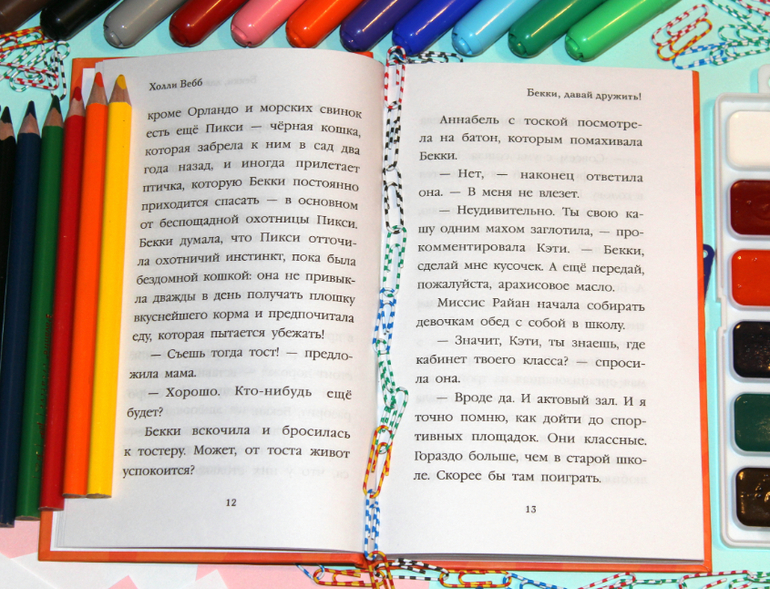 Холли Вебб
кроме Орландо и морских свинок
есть ещё Пикси — чёрная кошка,
которая забрела к ним в сад два
года назад, и иногда прилетает
птичка, которую Бекки постоянно
приходится спасать — в основном
от беспощадной охотницы Пикси.
Бекки думала, что Пикси отточи-
ла охотничий инстинкт, пока была
бездомной кошкой: она не привык-
ла дважды в день получать плошку
вкуснейшего корма и предпочитала
еду, которая пытается убежать!
— Съешь тогда тост! — предло-
жила мама.
— Хорошо. Кто-нибудь ещё
будет?
Бекки вскочила и бросилась
к тостеру. Может, от тоста живот
успокоится?
12
Бекки, давай дружить!
Аннабель с тоской посмотре-
ла на батон, которым помахивала
Бекки.
— Нет, — наконец ответила
она. — В меня не влезет.
— Неудивительно. Ты свою ка-
шу одним махом заглотила, — про-
комментировала Кэти. — Бекки,
сделай мне кусочек. А ещё передай,
пожалуйста, арахисовое масло.
Миссис Райан начала собирать
девочкам обед с собой в школу.
— Значит, Кэти, ты знаешь, где
кабинет твоего класса? — спроси-
ла она.
— Вроде да. И актовый зал. И я
точно помню, как дойти до спор-
тивных площадок. Они классные.
Гораздо больше, чем в старой шко-
ле. Скорее бы там поиграть.
13